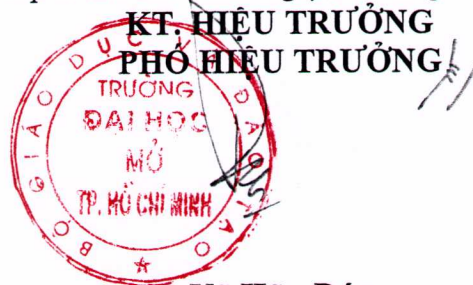 KT. HIỆU TRƯỞNG
PHÓ HIỆU TRƯỞNG
BỘ GIÁO DỤC VÀ ĐÀO TẠO
TRƯỜNG
ĐẠI HỌC
MỞ
TP. HỒ CHÍ MINH